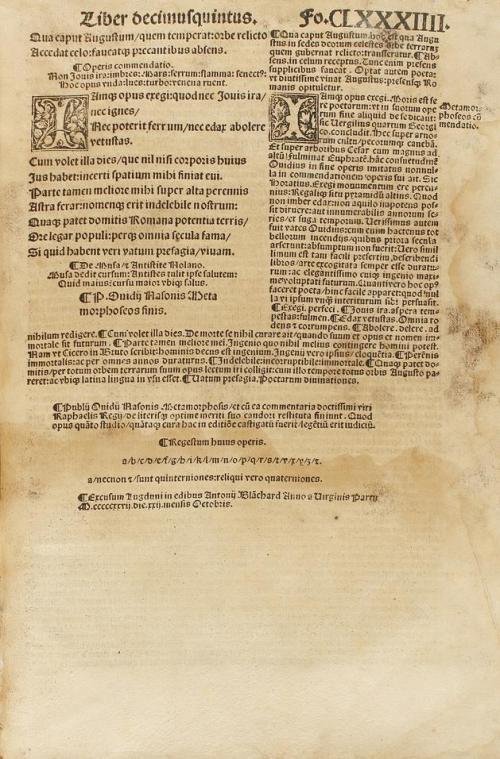 Liber decimusquintus. Fo.CLXXXIIII.
Qua caput Augustum/quem temperat:orbe relicto
Accedat celo:faueatq3 precantibus absens.
¶Operis commendatio.
Non Iouis ira:imbres:Mars:ferrum:flamma:senect9:
Hoc opus vnda:lues:turbo:venena ruent.
Iamq3 opus exegi:quod nec Iouis ira/
nec ignes/
Nec poterit ferrum/nec edax abolere
vetustas.
Cum volet illa dies/que nil nisi corporis huius
Ius habet:incerti spatium mihi finiat eui.
Parte tamen meliore mihi super alta perennis
Astra ferar:nomenq3 erit indelebile nostrum:
Quaq3 patet domitis Romana potentia terris/
Ore legar populi:perq3 omnia secula fama/
Si quid habent veri vatum presagia/viuam.
¶De Musa/& Antistite Nolano.
Musa dedit cursum:Antistes tulit ipse salutem:
Quid maius:cursu maior vbiq3 salus.
¶P.Ouidij Nasonis Meta
morphoseos finis.
¶Qua caput Augustum.hoc est qua Augu
stus in sedes deorum celestes orbe terrarum
quem gubernat relicto:transferatur.¶Ab
sens.in celum receptus.Tunc enim presens
supplicibus faucit. Optat autem poeta:
vt diutissime viuat Augustus:presensq3 Ro
manis opituletur.
Iamq3 opus exegi.Moris est fe
re poetarum:et in suorum ope
rum fine aliquid de se dicant:
Sic Uergilius quartum Georgi
co.concludit.Hec super aruo-
rum cultu/pecorumq3 caneba3.
Et super arboribus Cesar cum magnus ad
altu3:fulminat Euphrate3.hac consuetudine3
Ouidius in fine operis imitatus nonnul-
la in commendationem operis sui ait. Sic
Horatius.Exegi monumentum ere peren-
nius:Regaliq3 situ pyramidu3 altius. Quod
non imber edax:non aquilo impotens pos-
sit diruere:aut innumerabilis annorum se-
ries/et fuga temporum. Uerissimus autem
fuit vates Ouidius:cum eum hactenus tot
bellorum incendijs:quibus priora secula
arserunt:absumptum non fuerit:Uero simil
limum est tam facili presertim/describendi
libros/arte excogitata semper esse duratu-
rum:ac elegantissimo eiusq3 ingenio maxi-
me voluptati futurum.
¶Exegi. perfeci. ¶Iouis ira.aspera tem-
pestas:fulmen.¶Edax vetustas.Omnia ro
dens & corrumpens. ¶Abolere.delere.ad
Metamor-
phoseos com
mendatio.
nihilum redigere.¶Cum volet illa dies.De morte se nihil curare ait/quando suum et opus et nomen im-
mortale sit futurum. ¶Parte tamen meliore mei.Ingenio quo nihil melius contingere homini potest.
Nam vt Cicero in Bruto scribit:hominis decus est ingenium.Ingenij vero ipsius/eloquentia.¶Perennis
immortalis:ac per omnes annos duraturus.¶Indelebile:incorruptibile:immortale.¶Quaq3 patet do-
mitis/per totum orbem terrarum suum opus lectum iri colligit:cum illo tempore totus orbis Augusto pa-
reret:ac vbiq3 latina lingua in vsu esset.¶Uatum presagia.Poetarum diuinationes.
¶Publij Ouidij Nasonis Metamorphosis/et cum ea commentaria doctissimi viri
Raphaelis Regij/de literisq3 optime meriti suo candori restituta finiunt. Quod
opus quanto studio/quantaq3 cura hac in editione castigatum fuerit/legentium erit iudicium.
¶Registrum huius operis.
a/b/c/d/e/f/g/h/i/k/l/m/n/o/p/q/r/s/t/v/x/y/z/&.
a/necnon & sunt quinterniones:reliqui vero quaterniones.
¶Excusum Lugduni in edibus Antonij Blanchard Anno a Uirginis Partu
M.ccccccxxij.die.xxj.mensis Octobris.